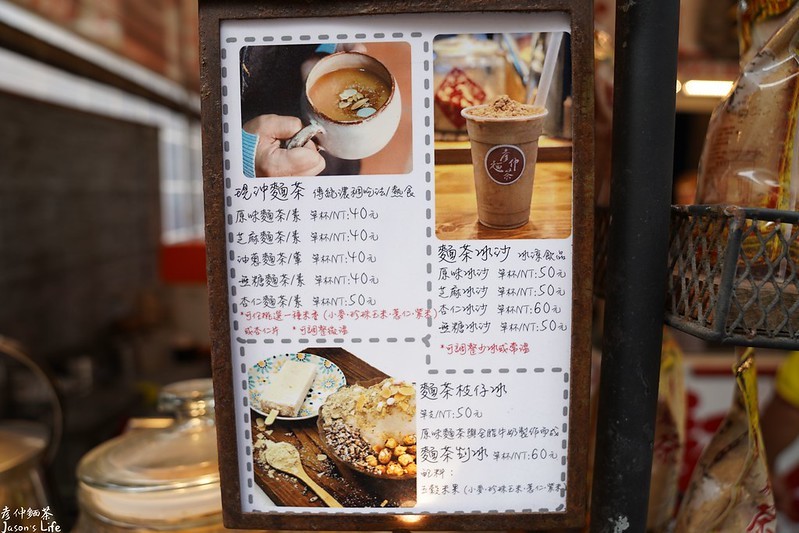 現沖麵茶 傳統濃稠吃法/熱食
原味麵茶/素 單杯/NT:40元
芝麻麵茶/素 單杯/NT:40元
沖蔥麵茶/葷 單杯/NT:40元
無糖麵茶/素 單杯/NT:40元
杏仁麵茶/素 單杯/NT:50元
*可仔挑選一種米香(小麥·珍珠玉米·薏仁·紫米)
或杏仁片 *可調整微溫
彥仲麵茶
麵茶冰沙 冰涼飲品
原味冰沙 單杯/NT:50元
芝麻冰沙 單杯/NT:50元
杏仁冰沙 單杯/NT:60元
無糖冰沙 單杯/NT:50元
*可調整少冰或常溫
麵茶枝仔冰
單支/NT:50元
原味麵茶與全脂牛奶製作而成
麵茶剉冰 單杯/NT:60元
配料:
五穀米果(小麥·珍珠玉米·薏仁·紫米)
茶
彥仲麵茶
Jason's Life